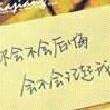 你会不会后悔
会不会记起我